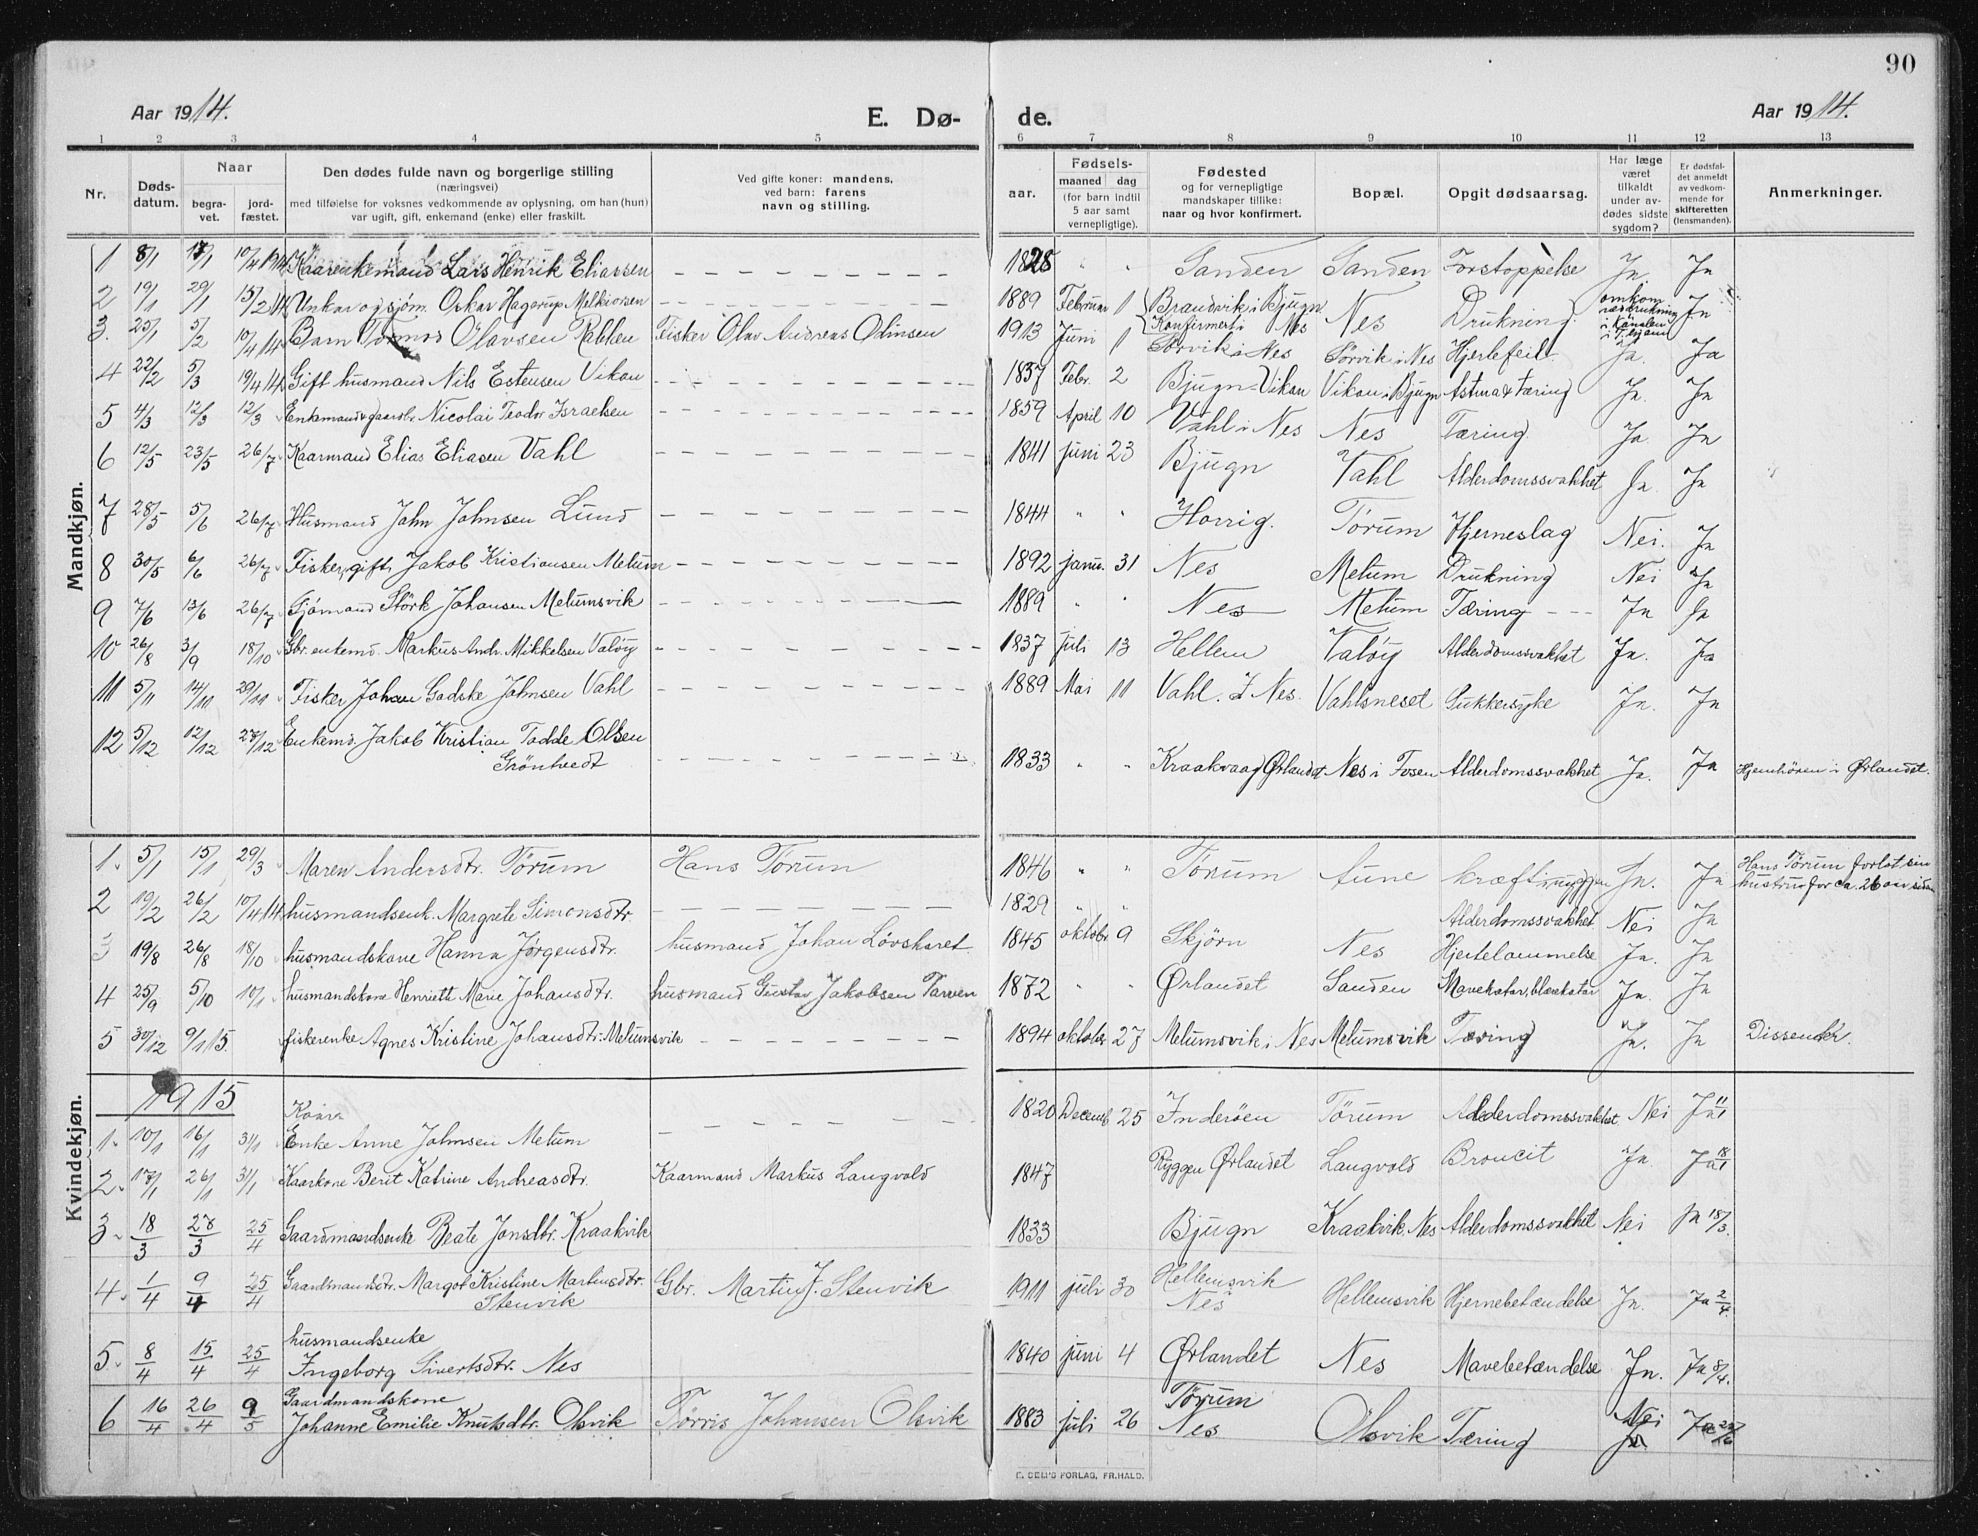 90
Aar 1914. E. Dø- de. Aar 1914.
1 2 3 4 5 6 7 8 9 10 11 12 13
Nr. Døds-datum. Naar begra-vet. jord-fæstet. Den dødes fulde navn og borgerlige stilling (næringsvei) med tilføielse for voksnes vedkommende av oplysning, om han (hun) var ugift, gift, enkemand (enke) eller fraskilt. Ved gifte koner: mandens, ved barn: farens navn og stilling. aar. Fødsels- maaned dag (for barn indtil 5 aar samt vernepligtige). Fødested og for vernepligtige mandskaper tillike: naar og hvor konfirmert. Bopæl. Opgit dødsaarsag. Har læge været tilkaldt under av-dødes sidste sygdom? Er dødsfal-det anmeldt av vedkom-mende for skifteretten (lensmanden). Anmerkninger.
Mandkjøn.
1 8/1 17/1 10/4 1914 Kaarenkemand Lars Henrik Eliassen 1828 " " Sanden Sanden Forstoppelse Ja Ja
2 19/1 29/1 15/2 14 Unkar og sjøm. Oskar Hagerup Melkiorsen 1889 Februar 1 Brandvik i Bjugn Konfirmert i Nes Nes Drukning omkom ved drukning i Kanalen i T.hjem Ja
3. 25/1 5/2 10/4 14 Barn Tormod Olavsen Fisker Olav Andreas Odinsen 1913 Juni 1 Sørvik i Nes Sørvik i Nes Hjertefeil Ja. Ja
4 22/2 5/3 19/4 14 Gift husmand Nils Estensen Vikan 1837 Febr. 2 Bjugn-Vikan Vikan i Bjugn Astma & tæring Ja. Ja
5 4/3 12/3 12/3 Enkemand & gaardbr. Nicolai Teodor Israelsen 1859 April 10 Vahl i Nes Nes Tæring Ja. Ja
6 12/5 23/5 26/7 Kaarmand Elias Eliasen Vahl 1841 juni 23 Bjugn Vahl Alderdomssvakhet Ja. Ja
7 28/5 5/6 26/7 Husmand John Johnsen Lund 1844 " " Tørum Hjerneslag Nei. Ja
8 30/5 6/6 26/7 Fisker, gift, Jakob Kristiansen Melum 1892 janu. 31 Nes Melum Drukning Nei Ja
9 7/6 13/6 26/7 Sjømand Størk Johansen Melumsvik 1889 " " Nes Melum Tæring Ja Ja
10 26/8 3/9 18/10 Gbr. enkemd. Markus Andr. Mikkelsen Valøy 1837 juli 13 Hellem Valøy Alderdomssvakhet Ja. Ja
11 5/11 14/11 29/11 Fisker Johan Gadske Johnsen Vahl 1889 Mai 11 Vahl. I Nes. Vahlsneset Sukkersyke Ja. Ja
12 5/12 12/12 27/12 Enkemd. Jakob Kristian Todde Olsen
Grøntvedt 1833 " " Kraakvaag Ørlandet Nes i Fosen Alderdomssvakhet Ja. Ja Hjemhören i Ørlandet.
Kvindekjøn.
1. 5/1 15/1 29/3 Maren Andersdtr. Tørum Hans Tørum 1846 " " Tørum Aune kræft i ryggen Ja. Ja Hans Tørum forlot sin hustru for ca. 26 aar siden
2 19/2 26/2 10/4 14 husmandsenk. Margrete Simonsdtr. 1829 " " Alderdomssvakhet Nei Ja
3 19/8 26/8 18/10 husmandskone Hanna Jørgensdtr. husmand Johan Løvskaret 1845 oktober 9 Skjørn Nes Hjertelammelse Ja. Ja
4 25/9 5/10 10/1 husmandskone Henriette Marie Johansdtr. husmand Gustav Jakobsen Tarven 1872 " " Ørlandet Sanden Mavekatar, blærekatar Ja. Ja
5 30/12 9/1 15. fiskerenke Agnes Kristine Johansdtr. Melumsvik 1894 oktober 27 Melumsvik i Nes Melumsvik Tæring Ja. Ja Dissenter.
1915
1. 10/1 16/1 31/1 Kaare Enke Anne Johnsen Melum 1820 Decemb 25 Inderöen Tørum Alderdomssvakhet Nei Ja 11/1
2. 17/1 26/1 31/1 Kaarkone Berit Katrine Andreasdtr. Kaarmand Markus Langvold 1847 Ryggen Ørlandet Langvold Broncit Ja. Ja 18/1
3. 18/3 27/3 25/4 Gaardmandsenke Beate Jonsdtr. Kraakvik 1833 Bjugn Kraakvik, Nes Alderdomssvakhet Nei Ja 18/3.
4. 1/4 9/4 25/4 Gaardmandsdtr. Margot Kristine Martinsdtr. Stenvik Gbr. Martin J. Stenvik 1911 juli 30 Hellemsvik Nes Hellemsvik Hjernebetændelse Ja. Ja 2/4.
5. 8/4 15/4 25/4 husmandsenke Ingeborg Sivertsdtr. Nes 1840 juni 4 Ørlandet Nes Mavebetændelse Ja. Ja 8/4.
6 16/4 26/4 9/5 Gaardmandskone Johanne Emilie Knutsdtr. Olsvik Tørris Johansen Olsvik 1883 juli 26 Tørum Nes Olsvik Tæring Nei Ja
E. SEM'S FORLAG, FR.HALD.